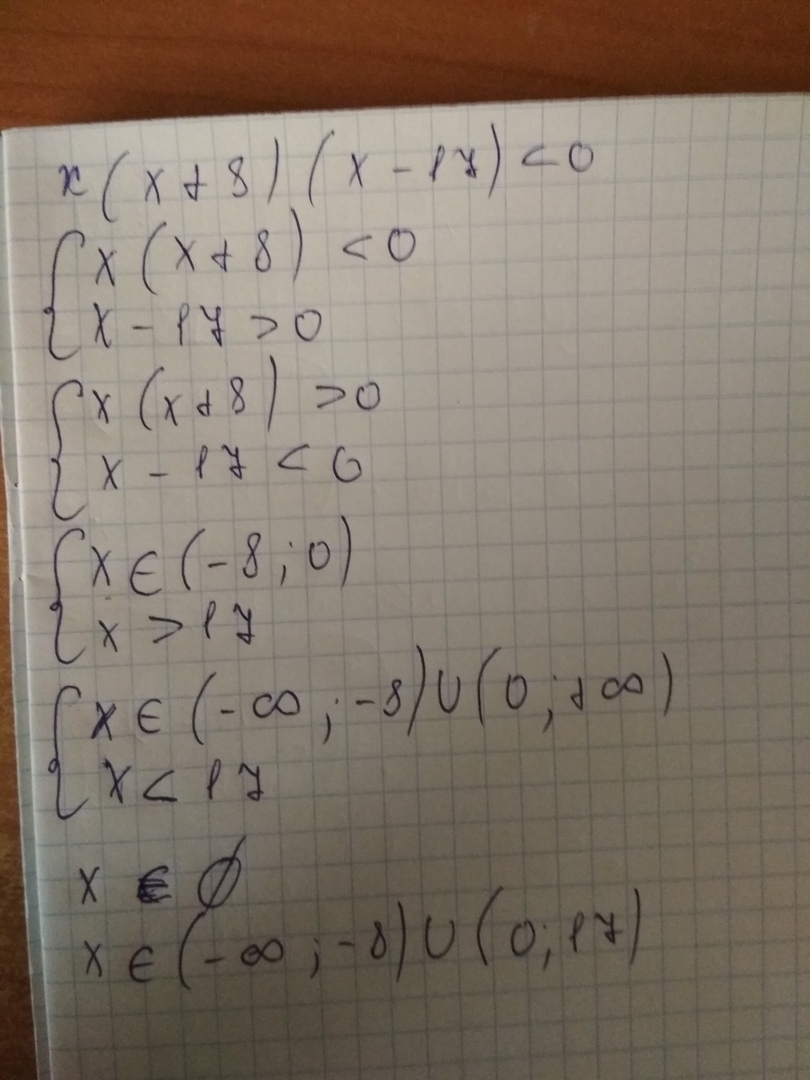 x(x+8)(x-17)<0
{x(x+8)<0
x-17>0
{x(x+8)>0
x-17<0
{x∈(-8;0)
x>17
{x∈(-∞;-8)∪(0;+∞)
x<17
x∈∅
x∈(-∞;-8)∪(0;17)